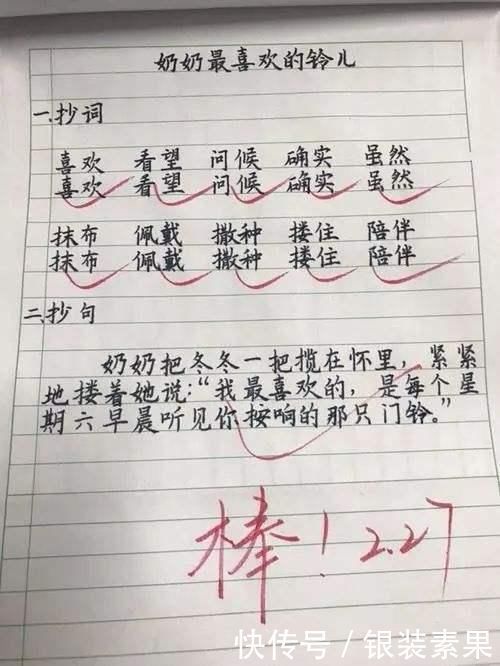 奶奶最喜欢的铃儿
一.抄词
喜欢 看望 问候 确实 虽然
喜欢 看望 问候 确实 虽然
抹布 佩戴 撒种 搂住 陪伴
抹布 佩戴 撒种 搂住 陪伴
二.抄句
奶奶把冬冬一把揽在怀里，紧紧
地搂着她说：“我最喜欢的，是每个星
期六早晨听见你按响的那只门铃。”
棒！2.27
快传号 / 银装素果